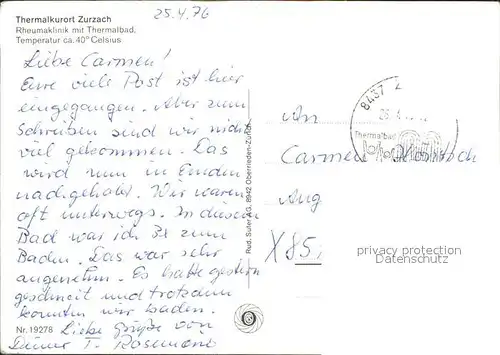 25.4.76
Thermalkurort Zurzach
Rheumaklinik mit Thermalbad,
Temperatur ca. 40° Celsius
Liebe Carmen!
Eure viele Post ist hier
eingegangen. Aber zum
schreiben sind wir nicht
viel gekommen. Das
wird nun in Emden
nachgeholt. Wir waren
oft unterwegs. In diesem
Bad war ich 3x zum
Baden. Das war sehr
angenehm. Es hatte gestern
geschneit und trotzdem
konnten wir baden.
Liebe Grüße von
Deiner T. Rosemarie
Nr. 19278
Rud. Suter AG, 8942 Oberrieden-Zürich
8437 Z
Thermalbad
An
Carmen
X85
privacy protection
Datenschutz